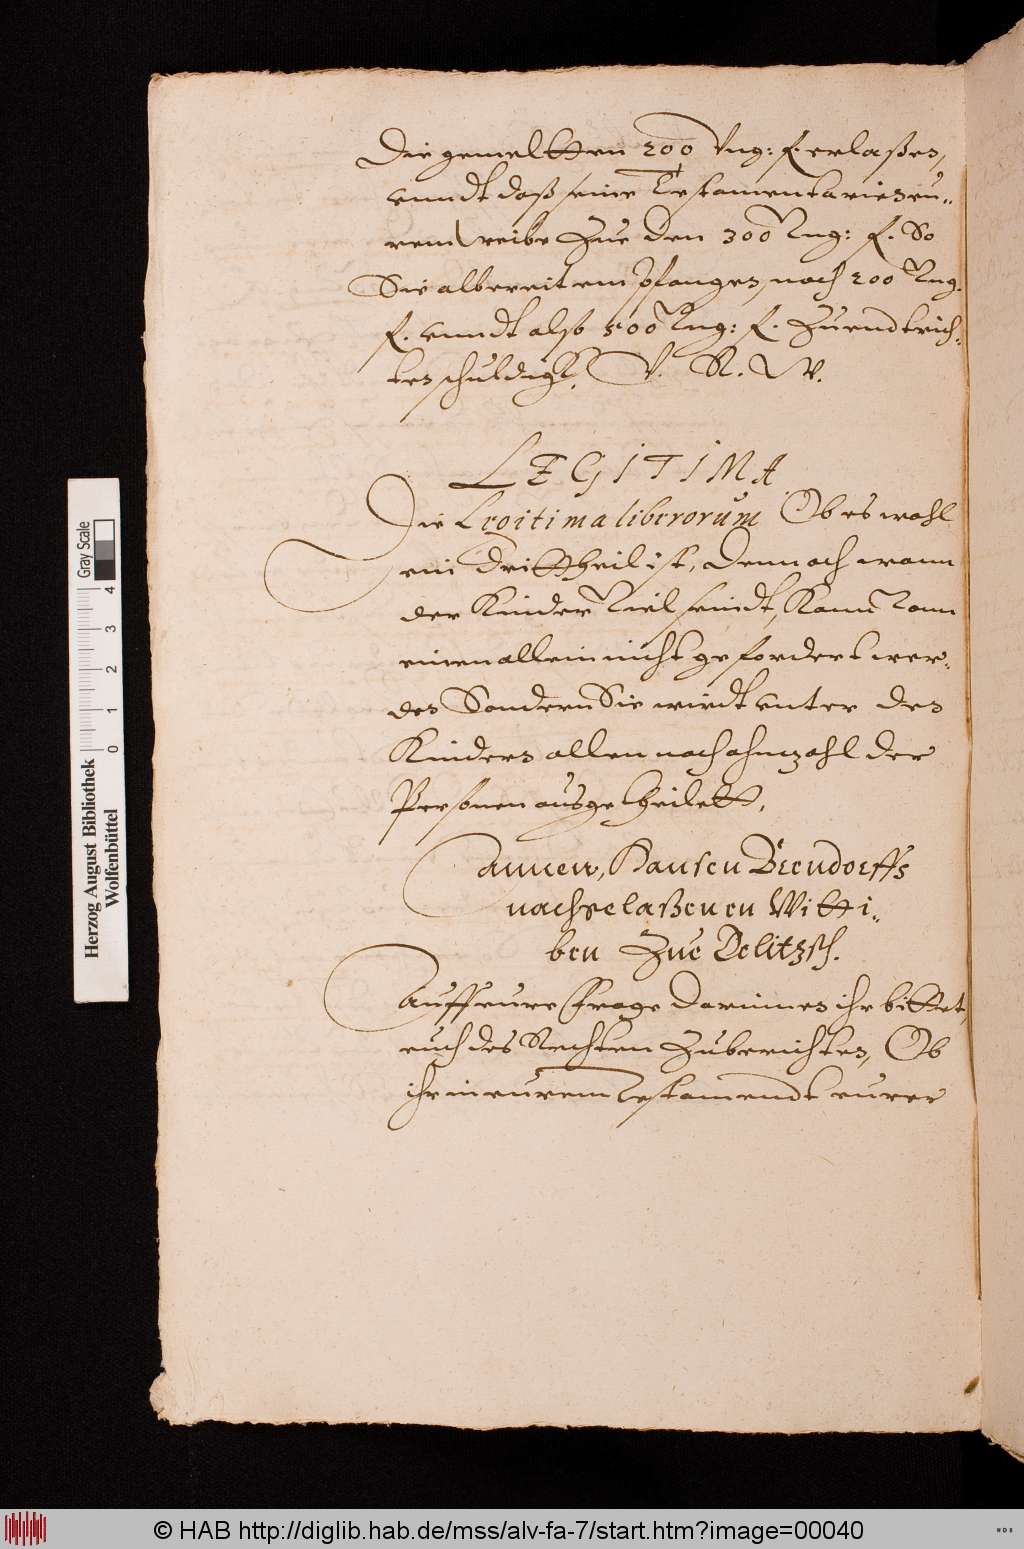 die gemeltten 200 Vng: f. erlaßen,
vnndt daß seine Testamentarien eu-,,
rem weibe Zue den 300 Vng: f. So
Sie albereit empfangen, noch 200 Vng.
f. vnndt also 500 Vng: f. Zu endtrich-,
ten schuldigk, V. R. W.
LEGITIMA
Die Legitima liberorum Ob es wohl
ein dritttheil ist, dennoch wann
der Kinder viel seindt, Kann von
einen allein nicht gefordert wer-,
den Sondern Sie wirdt vnter den
Kindern allen nach ahnzahl der
Personen ausgetheilett,
Annen, Hansen Berndorffs
nachgelaßenen Witti-,,
ben Zue Delitzsch.
Auff eure Frage darinnen ihr bittet,
euch des Rechten Zuberichten, Ob
ihr in eurem Testamendt eurer
Gray Scale
0 1 2 3 4
Herzog August Bibliothek
Wolfenbüttel
© HAB http://diglib.hab.de/mss/alv-fa-7/start.htm?image=00040